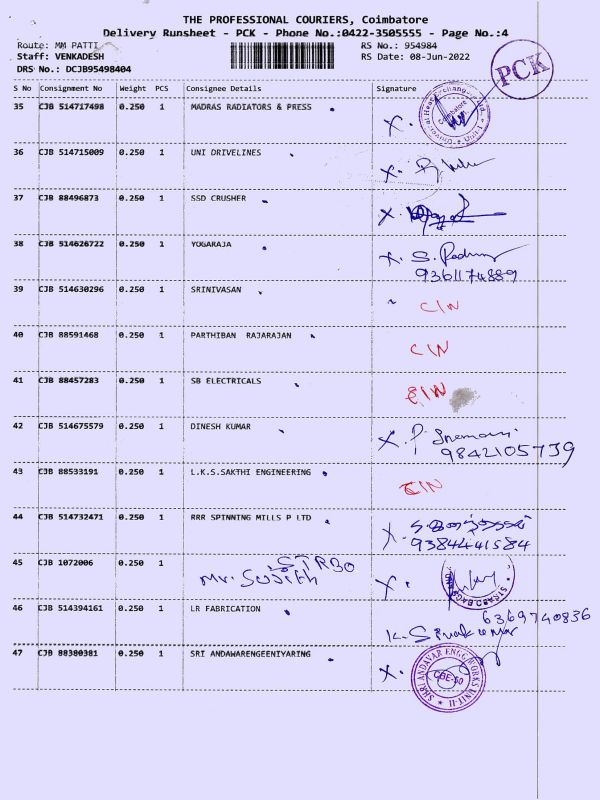 THE PROFESSIONAL COURIERS, Coimbatore
Delivery Runsheet - PCK - Phone No.:0422-3505555 - Page No.:4
Route: MM PATTI RS No.: 954984
Staff: VENKADESH RS Date: 08-Jun-2022
DRS No.: DCJB95498404
PCK
S No Consignment No Weight PCS Consignee Details Signature
35 CJB 514717498 0.250 1 MADRAS RADIATORS & PRESS X.
36 CJB 514715009 0.250 1 UNI DRIVELINES X.
37 CJB 88496873 0.250 1 SSD CRUSHER X.
38 CJB 514626722 0.250 1 YOGARAJA X. S.
9361174889
39 CJB 514630296 0.250 1 SRINIVASAN CIN
40 CJB 88591468 0.250 1 PARTHIBAN RAJARAJAN CIN
41 CJB 88457283 0.250 1 SB ELECTRICALS CIN
42 CJB 514675579 0.250 1 DINESH KUMAR X. P.
9842105739
43 CJB 88533191 0.250 1 L.K.S.SAKTHI ENGINEERING CIN
44 CJB 514732471 0.250 1 RRR SPINNING MILLS P LTD X.
9384441584
45 CJB 1072006 0.250 1 STRBO X.
Mr. Sujith
46 CJB 514394161 0.250 1 LR FABRICATION 6369740836
K. Sivakumar
47 CJB 88380381 0.250 1 SRI ANDAWARENGEENIYARING X.
SHRI ANDAVAR ENGG WORKS UNIT-II